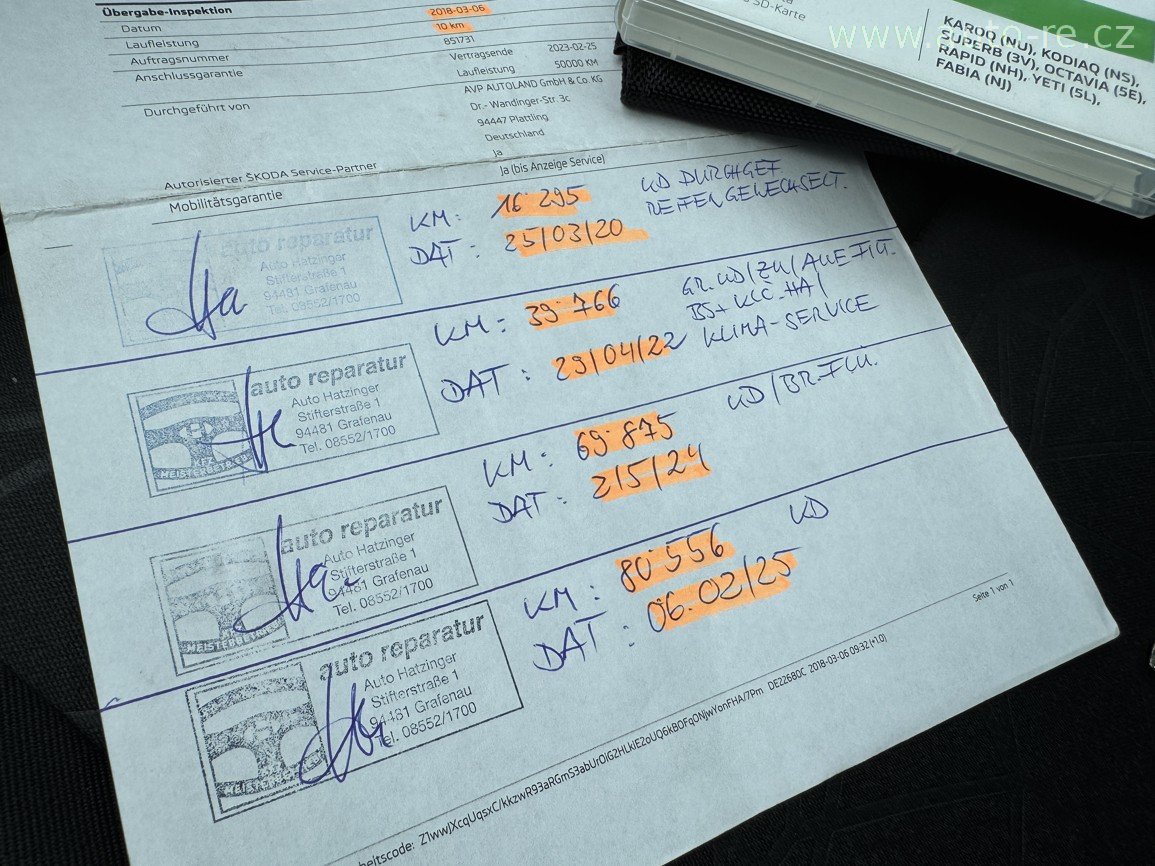 Übergabe-Inspektion
Datum 2018-03-06
Laufleistung 10 km
Auftragsnummer 851731
Anschlussgarantie Vertragsende 2023-02-25
Laufleistung 50000 KM
Durchgeführt von AVP AUTOLAND GmbH & Co. KG
Dr.- Wandinger-Str. 3c
94447 Plattling
Deutschland
Autorisierter ŠKODA Service-Partner Ja
Mobilitätsgarantie Ja (bis Anzeige Service)
SD-Karte
www.auto-re.cz
KAROQ (NU), KODIAQ (NS),
SUPERB (3V), OCTAVIA (5E),
RAPID (NH), YETI (5L),
FABIA (NJ)
auto reparatur
Auto Hatzinger
Stifterstraße 1
94481 Grafenau
Tel. 08552/1700
KM: 16.295
DAT: 25/03/20
KD DURCHGEF
REIFEN GEWECHSELT.
auto reparatur
Auto Hatzinger
Stifterstraße 1
94481 Grafenau
Tel. 08552/1700
KFZ
MEISTERBETRIEB
KM: 39.766
DAT: 29/04/22
GR. KD/ZK/
KLIMA-SERVICE
auto reparatur
Auto Hatzinger
Stifterstraße 1
94481 Grafenau
Tel. 08552/1700
MEISTERBETRIEB
KM: 69.875
DAT: 2/5/24
KD/BR.FLÜ.
auto reparatur
Auto Hatzinger
Stifterstraße 1
94481 Grafenau
Tel. 08552/1700
MEISTERBETRIEB
KM: 80.556
DAT: 06.02/25
KD
Seite 1 von 1
DE22680C 2018-03-06 09:32 (+1.0)